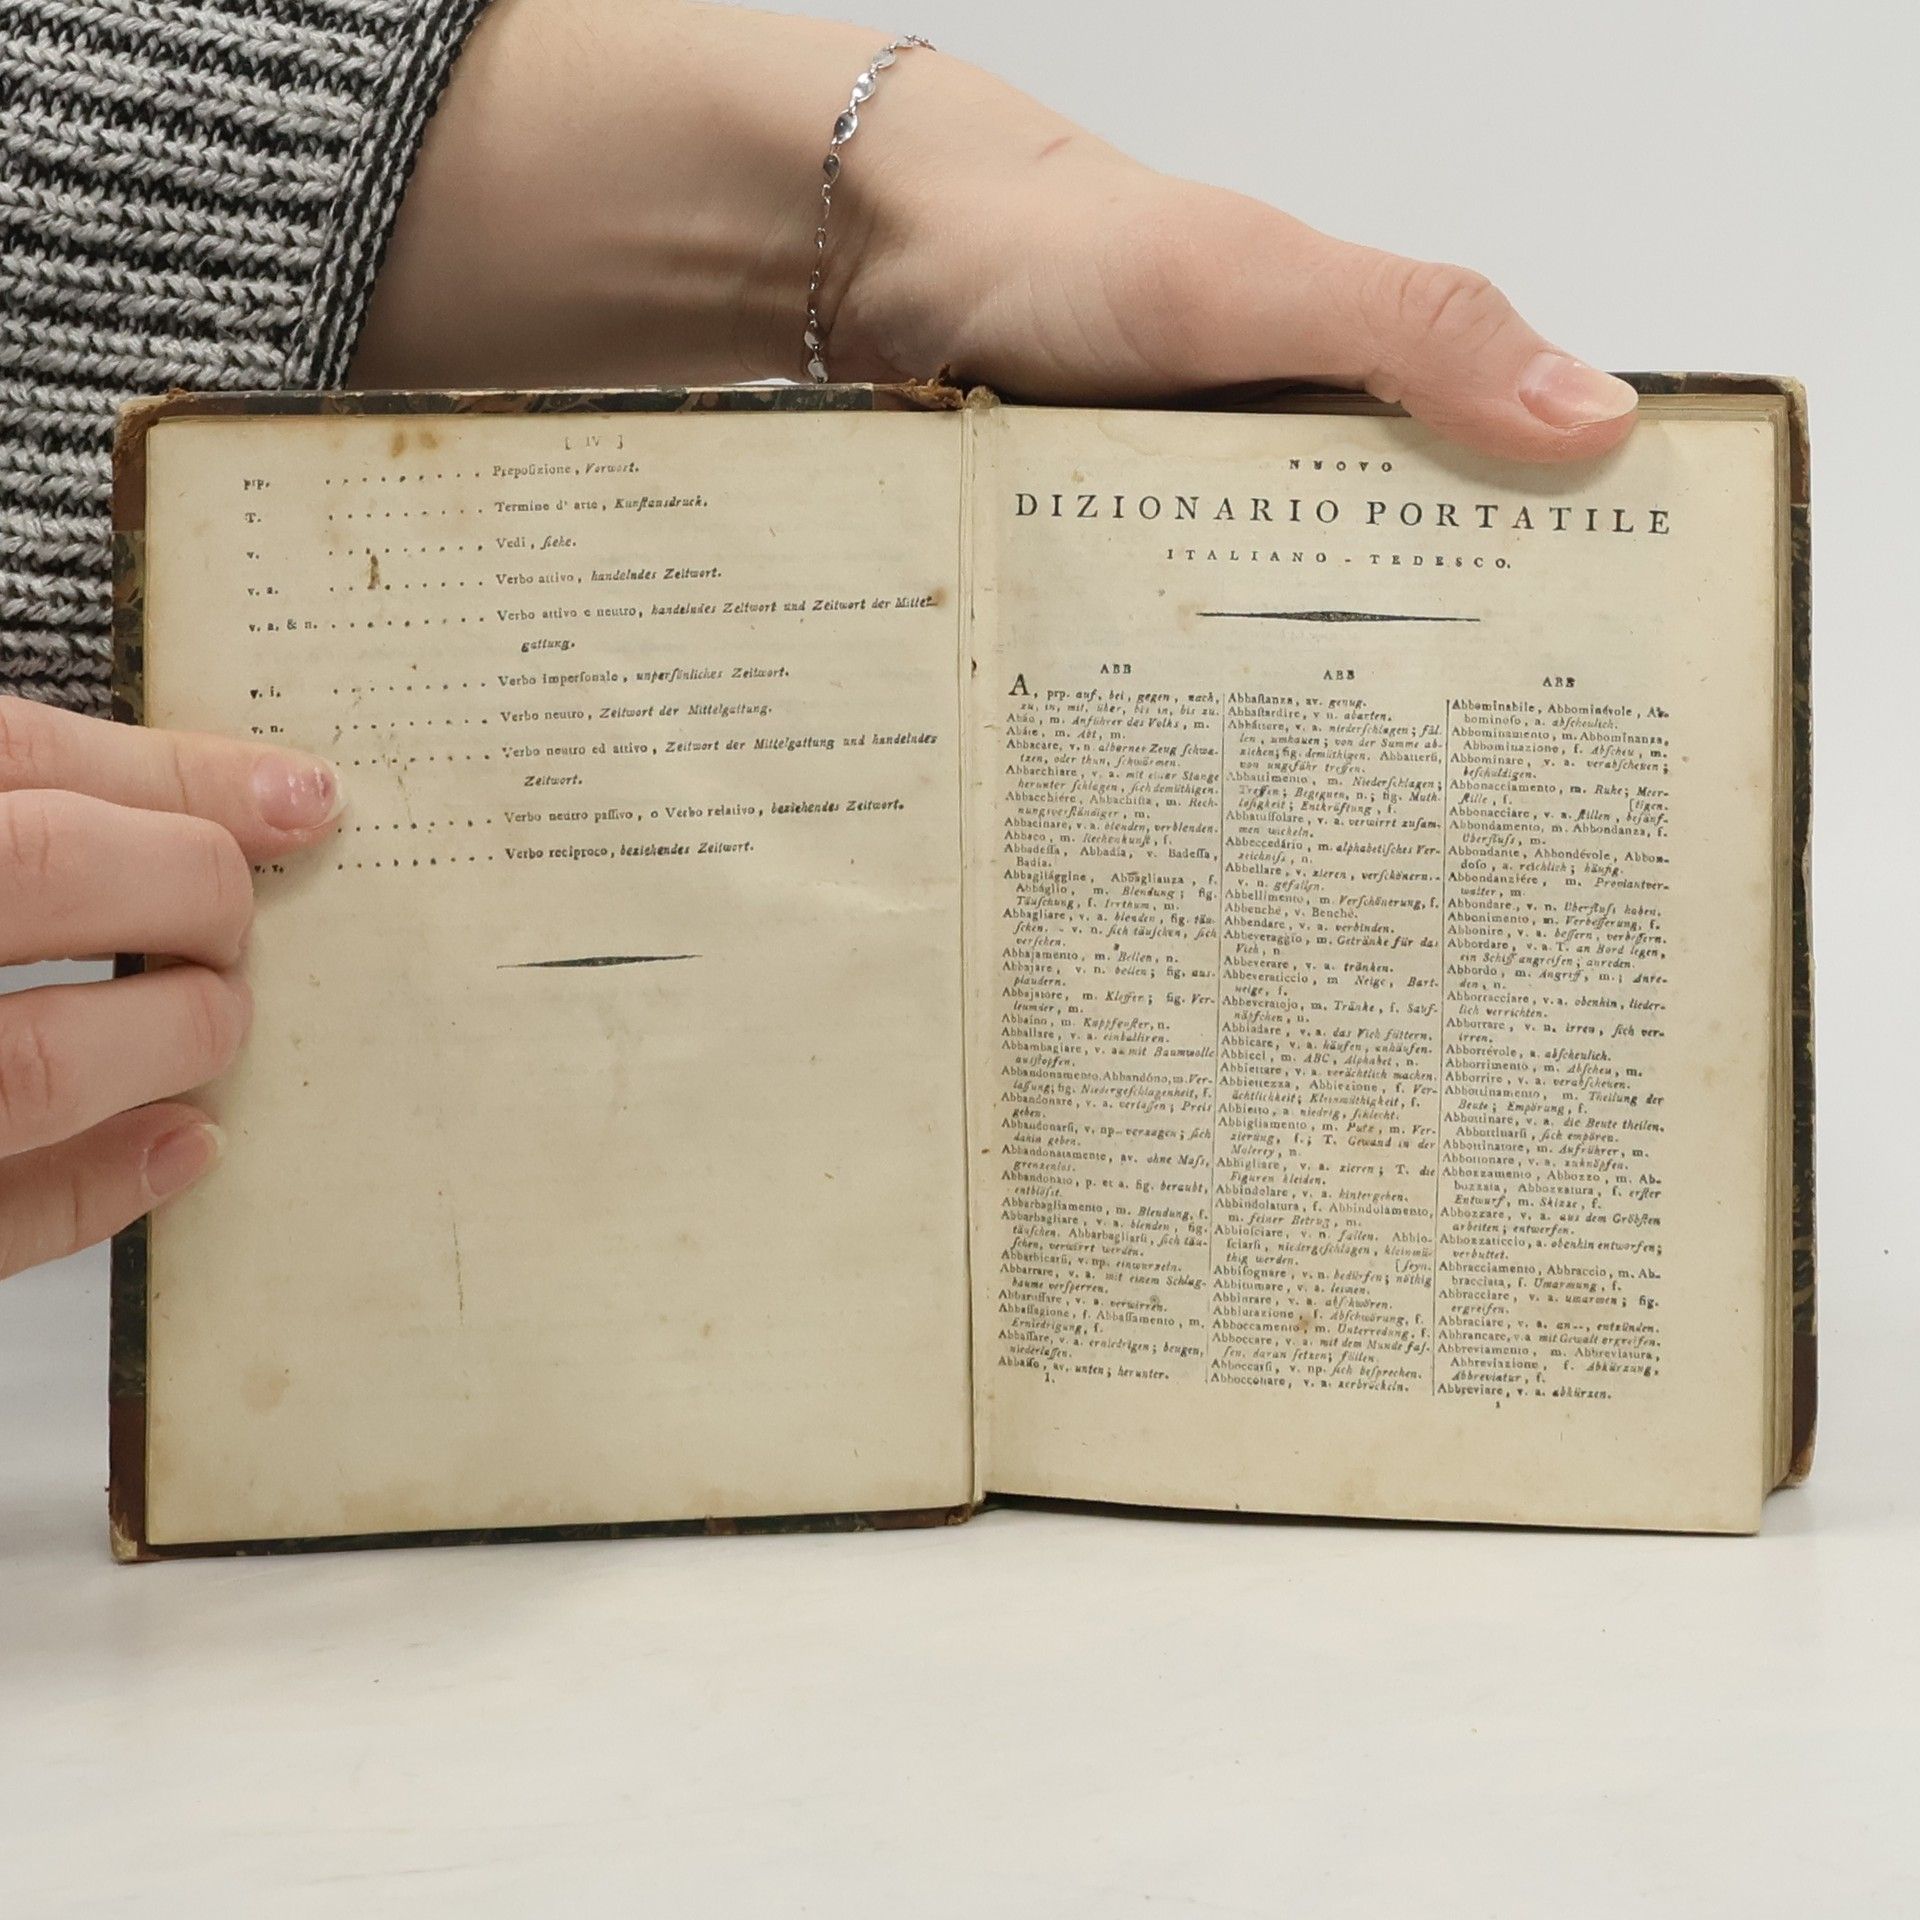 [ IV ]
prp. . . . . . . . . . . Preposizione, Vorwort.
T. . . . . . . . . . . Termine d' arte, Kunſtausdruck.
v. . . . . . . . . . . Vedi, ſiehe.
v. a. . . . . . . . . . . Verbo attivo, handelndes Zeitwort.
v. a. & n. . . . . . . . . . . Verbo attivo e neutro, handelndes Zeitwort und Zeitwort der Mittel-
gattung.
v. i. . . . . . . . . . . Verbo imperſonale, unperſönliches Zeitwort.
v. n. . . . . . . . . . . Verbo neutro, Zeitwort der Mittelgattung.
. . . . . . . . . . Verbo neutro ed attivo, Zeitwort der Mittelgattung und handelndes
Zeitwort.
. . . . . . . . . . Verbo neutro paſſivo, o Verbo relativo, beziehendes Zeitwort.
v. r. . . . . . . . . . . Verbo reciproco, beziehendes Zeitwort.
NUOVO
DIZIONARIO PORTATILE
ITALIANO - TEDESCO.
ABB
A, prp. auf, bei, gegen, nach,
zu, in, mit, über, bis in, bis zu.
Abáo, m. Anführer des Volks, m.
Abáte, m. Abt, m.
Abbacare, v. n. albernes Zeug ſchwa-
tzen, oder thun, ſchwärmen.
Abbacchiare, v. a. mit einer Stange
herunter ſchlagen, ſich demüthigen.
Abbacchiére, Abbachiſta, m. Rech-
nungsverſtändiger, m.
Abbacinare, v. a. blenden, verblenden.
Abbaco, m. Rechenkunſt, f.
Abbadeſſa, Abbadía, v. Badeſſa,
Badía.
Abbagliággine, Abbaglianza, f.
Abbáglio, m. Blendung; fig.
Täuſchung, f. Irrthum, m.
Abbagliare, v. a. blenden, fig. täu-
ſchen. - v. n. ſich täuſchen, ſich
verſehen.
Abbajamento, m. Bellen, n.
Abbajare, v. n. bellen; fig. aus-
plaudern.
Abbajatore, m. Kleffer; fig. Ver-
leumder, m.
Abbaino, m. Kappfenſter, n.
Abballare, v. a. einballiren.
Abbambagiare, v. a. mit Baumwolle
ausſtopfen.
Abbandonamento, Abbandóno, m. Ver-
laſſung; fig. Niedergeſchlagenheit, f.
Abbandonare, v. a. verlaſſen; Preis
geben.
Abbandonarſi, v. np. verzagen; ſich
dahin geben.
Abbandonatamente, av. ohne Maſs,
grenzenlos.
Abbandonato, p. et a. fig. beraubt,
entblöſst.
Abbarbagliamento, m. Blendung, f.
Abbarbagliare, v. a. blenden, fig.
täuſchen. Abbarbagliarſi, ſich täu-
ſchen, verwirrt werden.
Abbarbicarſi, v. np. einwurzeln.
Abbarrare, v. a. mit einem Schlag-
baume verſperren.
Abbaruffare, v. a. verwirren.
Abbaſſagione, f. Abbaſſamento, m.
Erniedrigung, f.
Abbaſſare, v. a. erniedrigen; beugen,
niederlaſſen.
Abbaſſo, av. unten; herunter.
I.
ABB
Abbaſtanza, av. genug.
Abbaſtardire, v. n. abarten.
Abbáttere, v. a. niederſchlagen; fäl-
len, umhauen; von der Summe ab-
ziehen; fig. demüthigen. Abbatterſi,
von ungefähr treffen.
Abbattimento, m. Niederſchlagen;
Treffen; Begegnen, n.; fig. Muth-
loſigkeit; Entkräftung, f.
Abbatuffolare, v. a. verwirrt zuſam-
men wickeln.
Abbeccedário, m. alphabetiſches Ver-
zeichniſs, n.
Abbellare, v. a. zieren, verſchönern.-
v. n. gefallen.
Abbellimento, m. Verſchönerung, f.
Abbenchè, v. Benchè.
Abbendare, v. a. verbinden.
Abbeveraggio, m. Getränke für das
Vieh, n.
Abbeverare, v. a. tränken.
Abbeveraticcio, m. Neige, Bart-
neige, f.
Abbeveratojo, m. Tränke, f. Sauf-
näpfchen, n.
Abbiadare, v. a. das Vieh füttern.
Abbicare, v. a. häufen, anhäufen.
Abbiccì, m. ABC, Alphabet, n.
Abbiettare, v. a. verächtlich machen.
Abbiettezza, Abbiezione, f. Ver-
ächtlichkeit; Kleinmüthigkeit, f.
Abbietto, a. niedrig, ſchlecht.
Abbigliamento, m. Putz, m. Ver-
zierung, f.; T. Gewand in der
Malerey, n.
Abbigliare, v. a. zieren; T. die
Figuren kleiden.
Abbindolare, v. a. hintergehen.
Abbindolatura, f. Abbindolamento,
m. feiner Betrug, m.
Abbioſciare, v. n. fallen. Abbio-
ſciarſi, niedergeſchlagen, kleinmü-
thig werden. [ſeyn.
Abbiſognare, v. n. bedürfen; nöthig
Abbitumare, v. a. leimen.
Abbiurare, v. a. abſchwören.
Abbiurazione, f. Abſchwörung, f.
Abboccamento, m. Unterredung, f.
Abboccare, v. a. mit dem Munde faſ-
ſen, daran ſetzen; füllen.
Abboccarſi, v. np. ſich beſprechen.
Abbocconare, v. a. zerbröckeln.
ABB
Abbominabile, Abbominévole, Ab-
bominoſo, a. abſcheulich.
Abbominamento, m. Abbominanza,
Abbominazione, f. Abſcheu, m.
Abbominare, v. a. verabſcheuen;
beſchuldigen.
Abbonacciamento, m. Ruhe; Meer-
ſtille, f. [tigen.
Abbonacciare, v. a. ſtillen, beſänf-
Abbondamento, m. Abbondanza, f.
Überfluſs, m.
Abbondante, Abbondévole, Abbon-
doſo, a. reichlich; häufig.
Abbondanziére, m. Proviantver-
walter, m.
Abbondare, v. n. Überfluſs haben.
Abbonimento, m. Verbeſſerung, f.
Abbonire, v. a. beſſern, verbeſſern.
Abbordare, v. a. T. an Bord legen,
ein Schiff angreifen; anreden.
Abbordo, m. Angriff, m.; Anre-
den, n.
Abborracciare, v. a. obenhin, lieder-
lich verrichten.
Abborrare, v. n. irren, ſich ver-
irren.
Abborrévole, a. abſcheulich.
Abborrimento, m. Abſcheu, m.
Abborrire, v. a. verabſcheuen.
Abbottinamento, m. Theilung der
Beute; Empörung, f.
Abbottinare, v. a. die Beute theilen.
Abbottinarſi, ſich empören.
Abbottinatore, m. Aufrührer, m.
Abbottonare, v. a. zuknöpfen.
Abbozzamento, Abbozzo, m. Ab-
bozzata, Abbozzatura, f. erſter
Entwurf, m. Skizze, f.
Abbozzare, v. a. aus dem Gröbſten
arbeiten; entwerfen.
Abbozzaticcio, a. obenhin entworfen;
verbuttet.
Abbracciamento, Abbraccio, m. Ab-
bracciata, f. Umarmung, f.
Abbracciare, v. a. umarmen; fig.
ergreifen.
Abbraciare, v. a. an--, entzünden.
Abbrancare, v. a. mit Gewalt ergreifen.
Abbreviamento, m. Abbreviatura,
Abbreviazione, f. Abkürzung,
Abbreviatur, f.
Abbreviare, v. a. abkürzen.
1